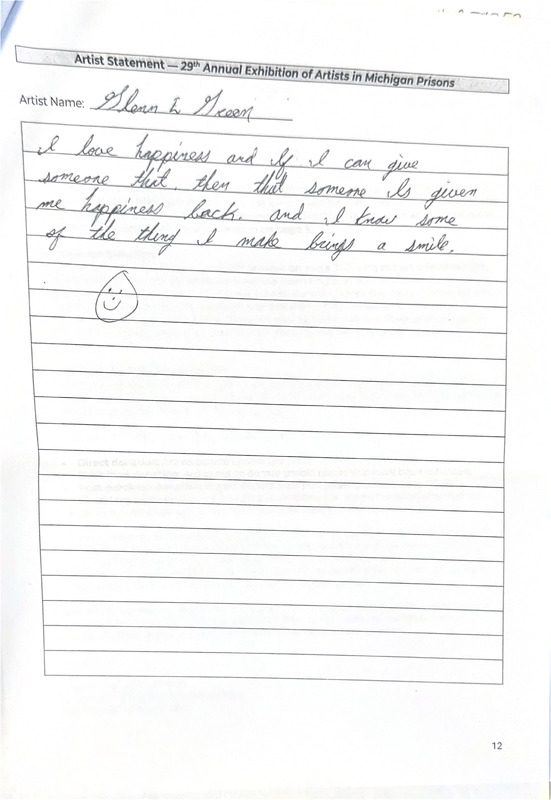 Artist Statement — 29th Annual Exhibition of Artists in Michigan Prisons
Artist Name: Glenn E Green
I love happiness and If I can give
someone that, then that someone Is given
me happiness back. and I know some
of the thing I make beings a smile.
12